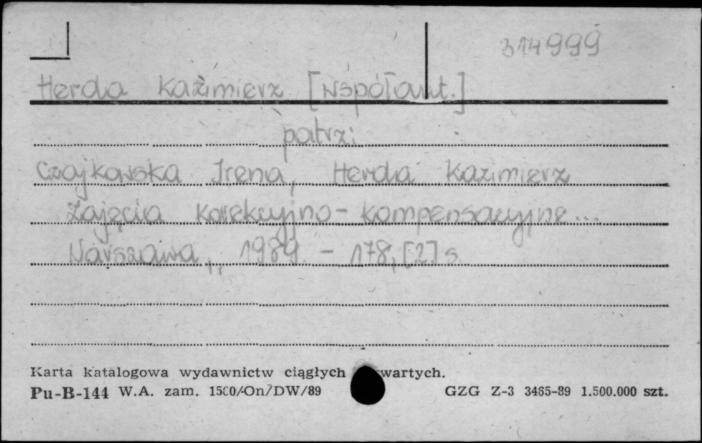 314999
Herda Kazimierz [współaut.]
patrz:
Czajkowska Irena, Herda Kazimierz
Zajęcia korekcyjno-kompensacyjne...
Warszawa, 1989 - 178, [2] s
Karta katalogowa wydawnictw ciągłych wartych.
Pu-B-144 W.A. zam. 1500/On/DW/89 GZG Z-3 3465-89 1.500.000 szt.